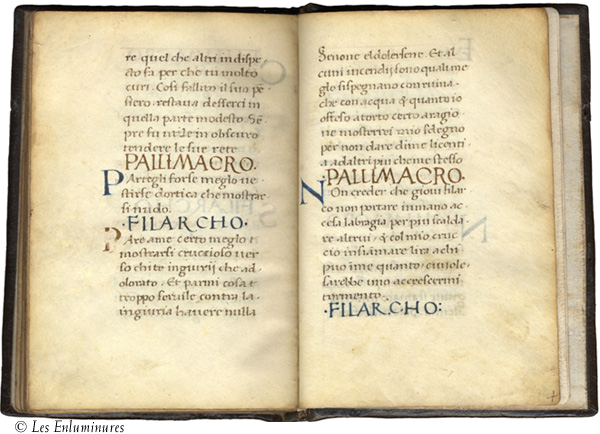 re quel che altri indispe
cto fa per che tu molto
curi. Cosi fallito il suo pẽ
siero. restava desserci in
quella parte modesto. Sẽ
pre fu utile in obscuro
tendere le sue rete
PALLIMACRO.
PArtegli forse meglo ue
stirse dortica che mostrar
si nudo.
·FILARCHO·
PAreame certo meglo ı
mostrarsi cruccioso uer
so chi te ingiurii che ad
olorato. Et parmi cosa t
troppo seruile contra la
ingiuria hauere nulla
Senone eldolersene. Et al
cuni incendii sono quali me
glo si spegnano con ruina
che con acqua & quanto io
offeso a torto certo aragio
ne mostrerei mio sdegno
per non dare di me licenti
a adaltri piu che me stesso
PALLIMACRO.
NOn creder che gioui filar
co non portare inmano ac
cesa labragia per piu scalda
re altrui & col mio cruc
cio infiamare lira a chi
puo ime quanto
sarebbe uno accrescermi
tormento.
·FILARCHO:
© Les Enluminures